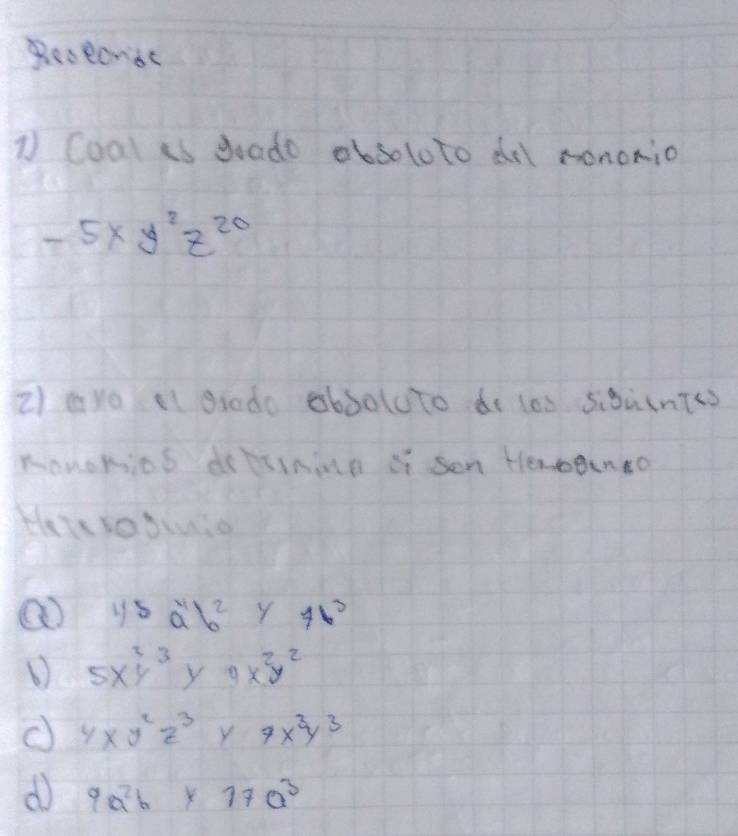 Responde
1) Coal es grado absoluto del monomio
- 5xy²z²⁰
2) el grado absoluto de los siguientes
monomios determina si son Homogeneo
Heterogenio
a) 45 a⁴b² y 7b³
b) 5x²y³ y 9x²y²
c) 4xy²z³ y 7x³y³
d) 9a²b y 17a³